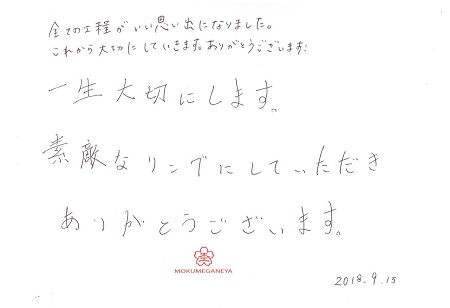 全ての工程がいい思い出になりました。
これから大切にしていきます。ありがとうございます!
一生大切にします。
素敵なリングにしていただき
ありがとうございます。
MOKUMEGANEYA
2018.9.15